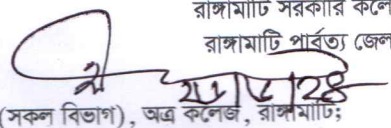 রাঙ্গামাটি সরকারি কলে
রাঙ্গামাটি পার্বত্য জেল
(সকল বিভাগ), অত্র কলেজ, রাঙ্গামাটি;